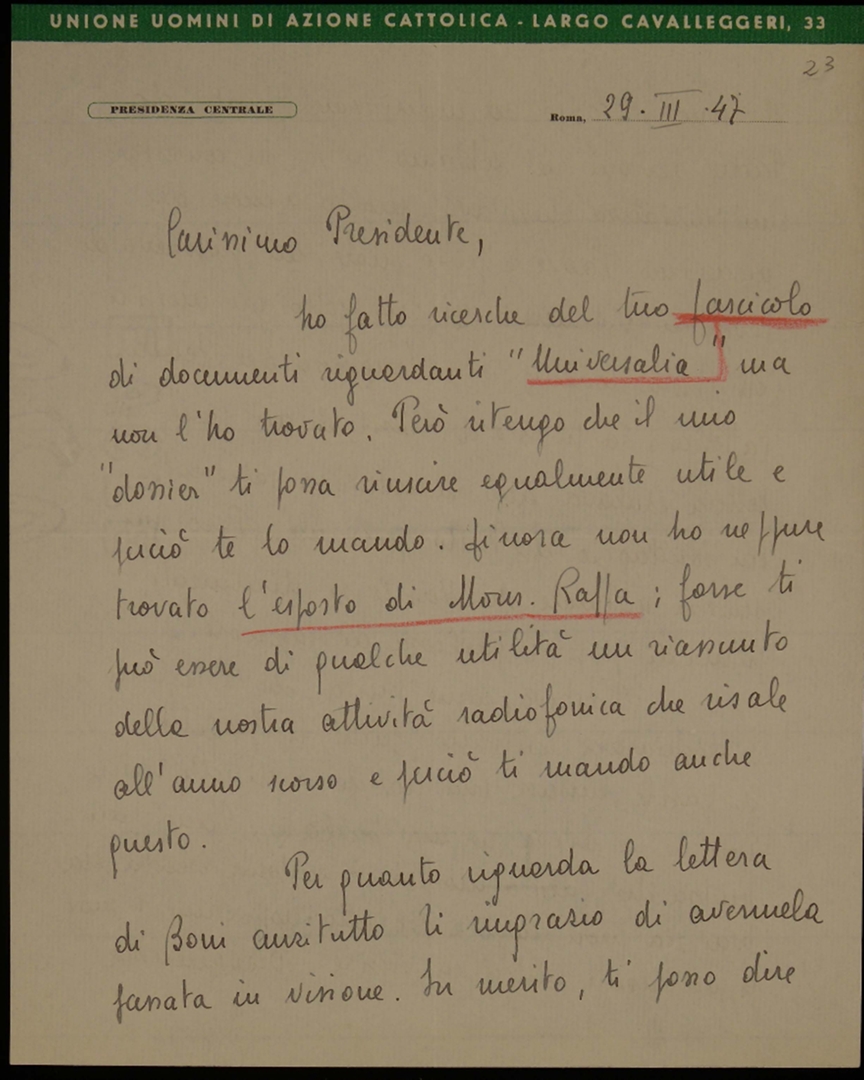 UNIONE UOMINI DI AZIONE CATTOLICA - LARGO CAVALLEGGERI, 33
23
PRESIDENZA CENTRALE
Roma, 29 · III · 47
Carissimo Presidente,
ho fatto ricerche del tuo fascicolo
di documenti riguardanti "Universalia" ma
non l'ho trovato. Però ritengo che il mio
"dossier" ti possa riuscire egualmente utile e
perciò te lo mando. Finora non ho neppure
trovato l'esposto di Mons. Raffa ; forse ti
può essere di qualche utilità un riassunto
della nostra attività radiofonica che risale
all'anno scorso e perciò ti mando anche
questo.
Per quanto riguarda la lettera
di Boni anzitutto ti ringrazio di avermela
passata in visione. In merito, ti posso dire